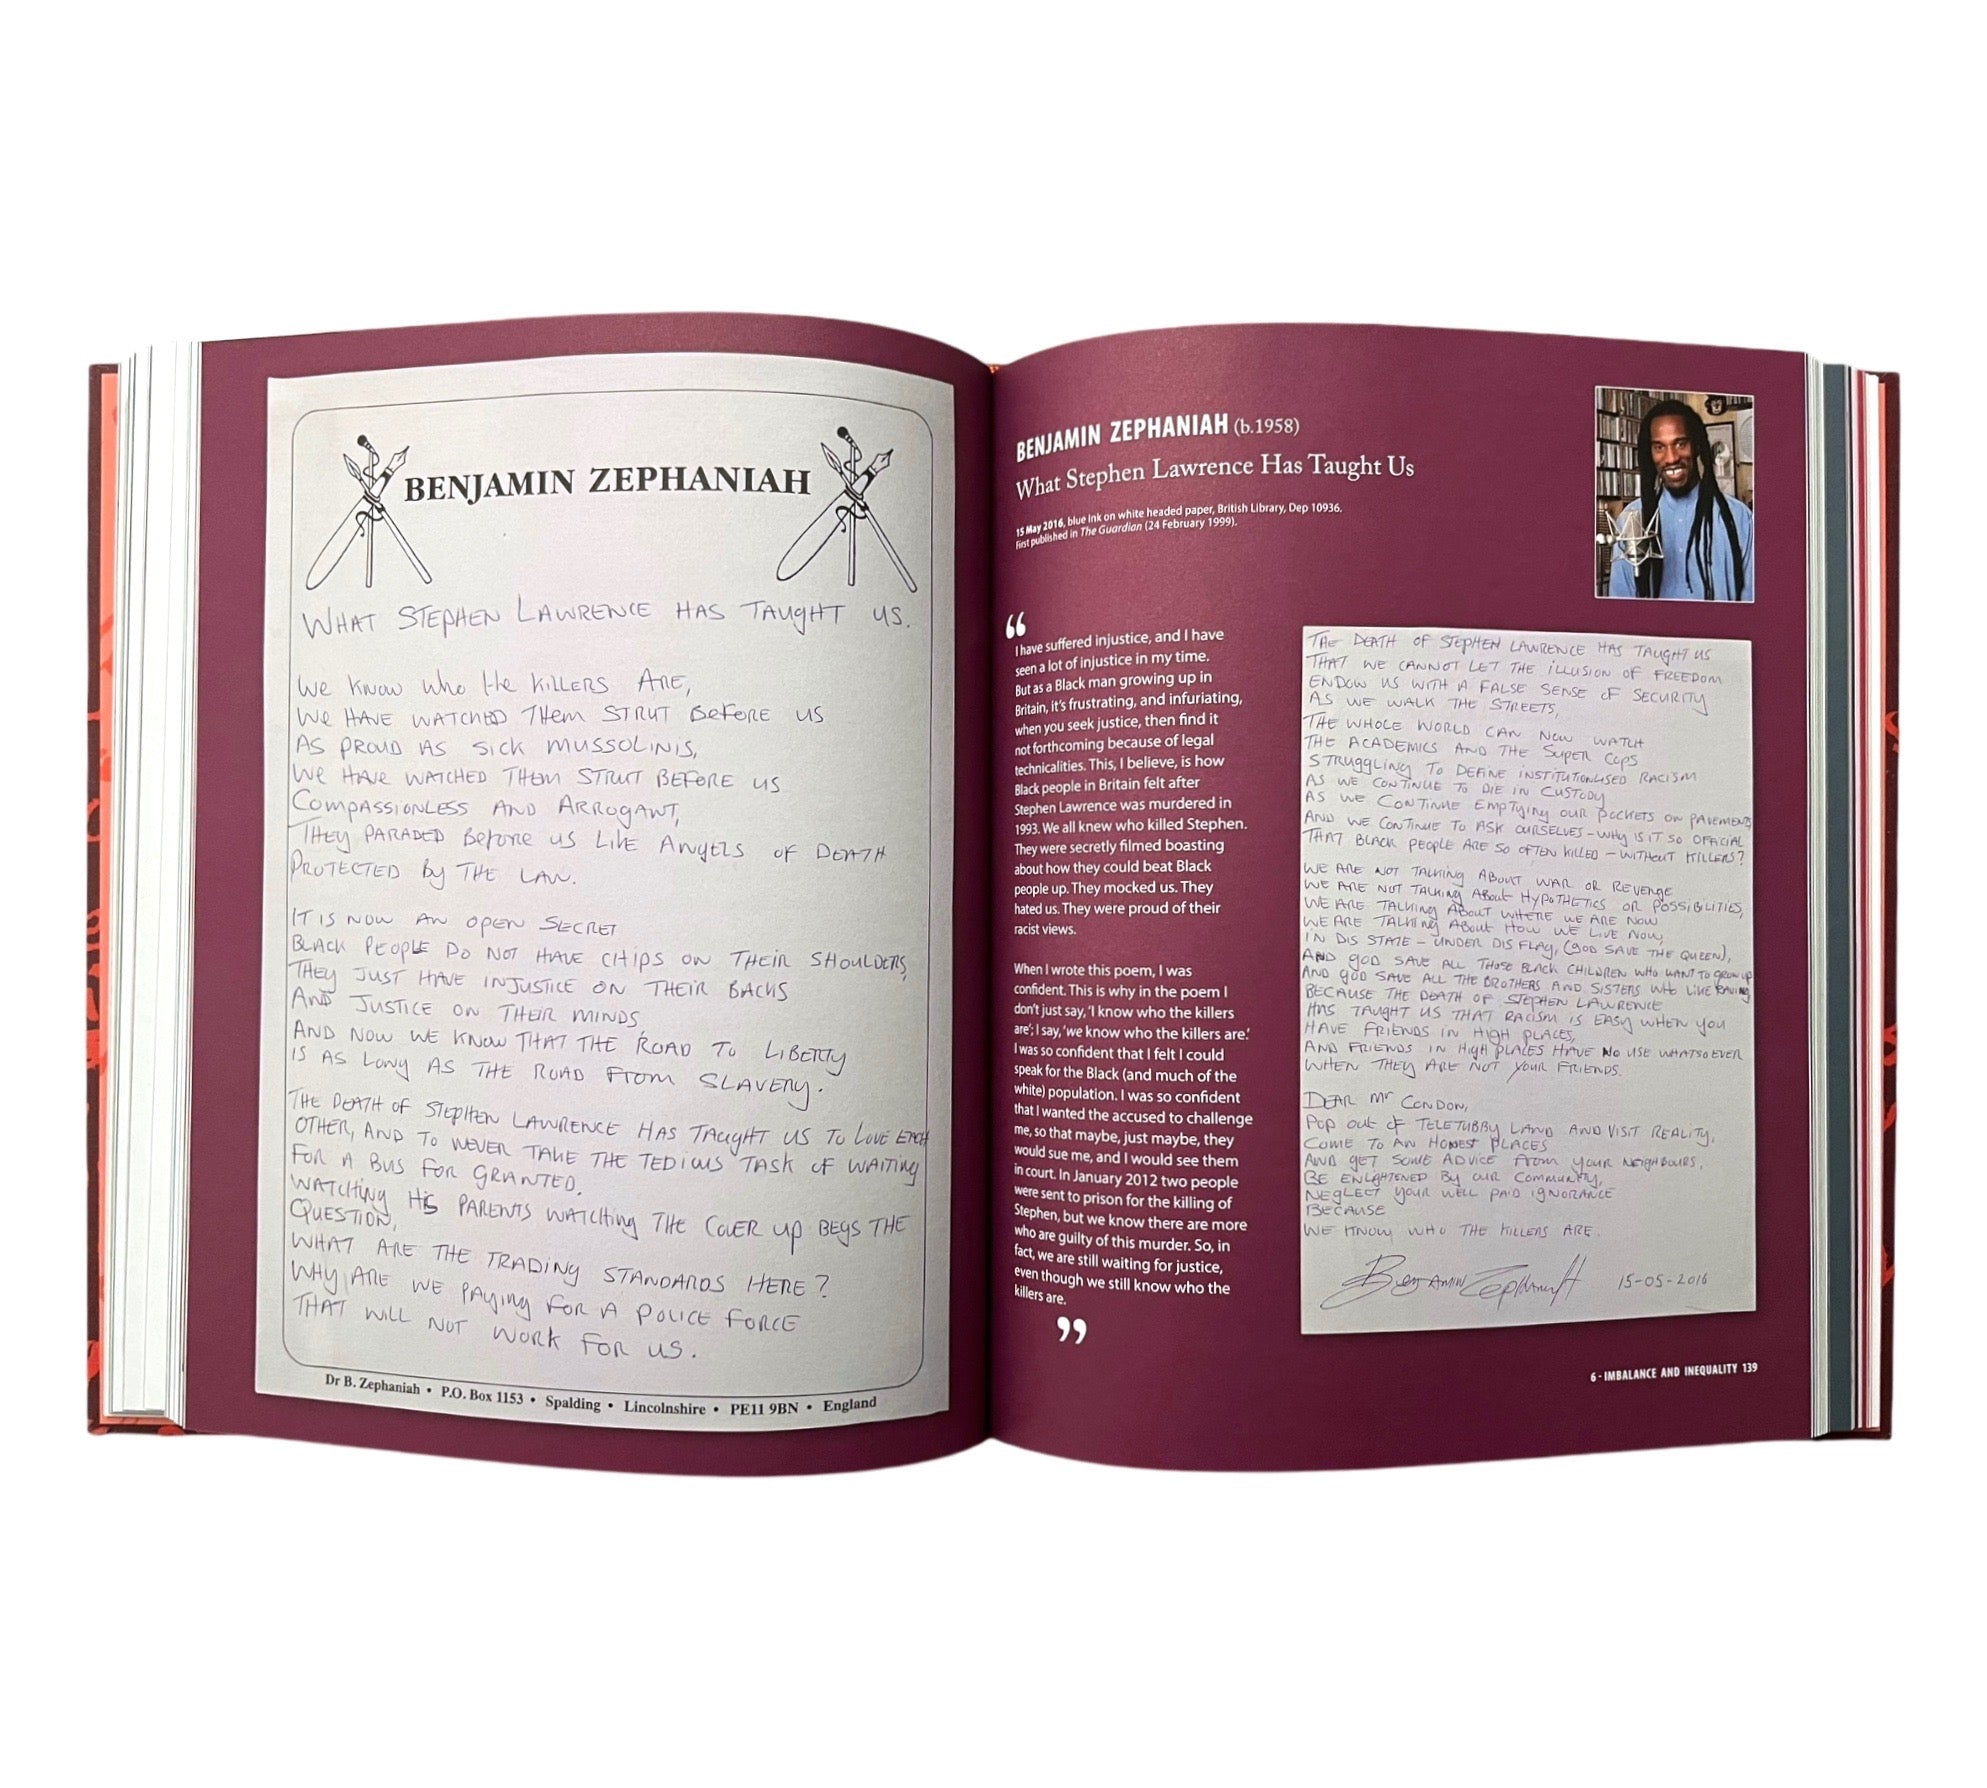 BENJAMIN ZEPHANIAH
WHAT STEPHEN LAWRENCE HAS TAUGHT US.
WE KNOW WHO THE KILLERS ARE,
WE HAVE WATCHED THEM STRUT BEFORE US
AS PROUD AS SICK MUSSOLINIS,
WE HAVE WATCHED THEM STRUT BEFORE US
COMPASSIONLESS AND ARROGANT,
THEY PARADED BEFORE US LIKE ANGELS OF DEATH
PROTECTED BY THE LAW.
IT IS NOW AN OPEN SECRET
BLACK PEOPLE DO NOT HAVE CHIPS ON THEIR SHOULDERS,
THEY JUST HAVE INJUSTICE ON THEIR BACKS
AND JUSTICE ON THEIR MINDS,
AND NOW WE KNOW THAT THE ROAD TO LIBERTY
IS AS LONG AS THE ROAD FROM SLAVERY.
THE DEATH OF STEPHEN LAWRENCE HAS TAUGHT US TO LOVE EACH
OTHER, AND TO NEVER TAKE THE TEDIOUS TASK OF WAITING
FOR A BUS FOR GRANTED.
WATCHING HIS PARENTS WATCHING THE COVER UP BEGS THE
QUESTION,
WHAT ARE THE TRADING STANDARDS HERE?
WHY ARE WE PAYING FOR A POLICE FORCE
THAT WILL NOT WORK FOR US.
Dr B. Zephaniah • P.O. Box 1153 • Spalding • Lincolnshire • PE11 9BN • England
BENJAMIN ZEPHANIAH (b.1958)
What Stephen Lawrence Has Taught Us
15 May 2016, blue ink on white headed paper, British Library, Dep 10936.
First published in The Guardian (24 February 1999).
“
I have suffered injustice, and I have
seen a lot of injustice in my time.
But as a Black man growing up in
Britain, it's frustrating, and infuriating,
when you seek justice, then find it
not forthcoming because of legal
technicalities. This, I believe, is how
Black people in Britain felt after
Stephen Lawrence was murdered in
1993. We all knew who killed Stephen.
They were secretly filmed boasting
about how they could beat Black
people up. They mocked us. They
hated us. They were proud of their
racist views.
When I wrote this poem, I was
confident. This is why in the poem I
don't just say, 'I know who the killers
are'; I say, 'we know who the killers are.'
I was so confident that I felt I could
speak for the Black (and much of the
white) population. I was so confident
that I wanted the accused to challenge
me, so that maybe, just maybe, they
would sue me, and I would see them
in court. In January 2012 two people
were sent to prison for the killing of
Stephen, but we know there are more
who are guilty of this murder. So, in
fact, we are still waiting for justice,
even though we still know who the
killers are.
”
THE DEATH OF STEPHEN LAWRENCE HAS TAUGHT US
THAT WE CANNOT LET THE ILLUSION OF FREEDOM
ENDOW US WITH A FALSE SENSE OF SECURITY
AS WE WALK THE STREETS,
THE WHOLE WORLD CAN NOW WATCH
THE ACADEMICS AND THE SUPER COPS
STRUGGLING TO DEFINE INSTITUTIONLISED RACISM
AS WE CONTINUE TO DIE IN CUSTODY
AS WE CONTINUE EMPTYING OUR POCKETS ON PAVEMENTS
AND WE CONTINUE TO ASK OURSELVES - WHY IS IT SO OFFICIAL
THAT BLACK PEOPLE ARE SO OFTEN KILLED - WITHOUT KILLERS?
WE ARE NOT TALKING ABOUT WAR OR REVENGE
WE ARE NOT TALKING ABOUT HYPOTHETICS OR POSSIBILITIES,
WE ARE TALKING ABOUT WHERE WE ARE NOW
WE ARE TALKING ABOUT HOW WE LIVE NOW,
IN DIS STATE - UNDER DIS FLAG, (GOD SAVE THE QUEEN),
AND GOD SAVE ALL THOSE BLACK CHILDREN WHO WANT TO GROW UP
AND GOD SAVE ALL THE BROTHERS AND SISTERS WHO LIKE RAVING
BECAUSE THE DEATH OF STEPHEN LAWRENCE
HAS TAUGHT US THAT RACISM IS EASY WHEN YOU
HAVE FRIENDS IN HIGH PLACES,
AND FRIENDS IN HIGH PLACES HAVE NO USE WHATSOEVER
WHEN THEY ARE NOT YOUR FRIENDS.
DEAR MR CONDON,
POP OUT OF TELETUBBY LAND AND VISIT REALITY,
COME TO AN HONEST PLACES
AND GET SOME ADVICE FROM YOUR NEIGHBOURS,
BE ENLIGHTENED BY OUR COMMUNITY,
NEGLECT YOUR WELL PAID IGNORANCE
BECAUSE
WE KNOW WHO THE KILLERS ARE.
BENJAMIN ZEPHANIAH 15-05-2016
6 - IMBALANCE AND INEQUALITY 139